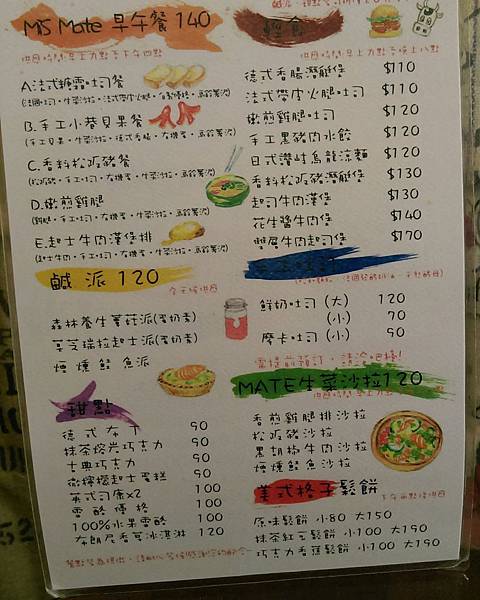 MS Mate 早午餐 140
供應時間:早上九點至下午四點
A.法式糖霜吐司餐
B.手工小巷貝果餐
C.香料松阪豬餐
D.嫩煎雞腿
E.起士牛肉漢堡排
鹹派 120
今天
森林養生蕈菇派(蛋奶素)
草芝瑞拉起士派(蛋奶素)
煙燻鮭魚派
甜點
德式布丁 90
抹茶熔岩巧克力 90
古典巧克力 90
微檸檬起士蛋糕 90
英式司康x2 100
雪酪優格 100
100%水果雪酪 100
布朗尼香草冰淇淋 120
輕食
供應時間:早上九點至晚上八點
德式香腸潛艇堡 $110
法式帶皮火腿吐司 $110
嫩煎雞腿吐司 $120
手工黑豬肉水餃 $120
日式讚岐烏龍涼麵 $120
香料松阪豬潛艇堡 $130
起司牛肉漢堡 $130
花生醬牛肉堡 $140
雙層牛肉起司堡 $170
鮮奶吐司 (大) 120
(小) 70
摩卡吐司 (小) 90
需提前預訂,請洽吧檯!
MATE生菜沙拉120
香煎雞腿排沙拉
松阪豬沙拉
黑胡椒牛肉沙拉
煙燻鮭魚沙拉
美式格子鬆餅
原味鬆餅 小80 大150
抹茶紅豆鬆餅 小100 大190
巧克力香蕉鬆餅 小100 大190